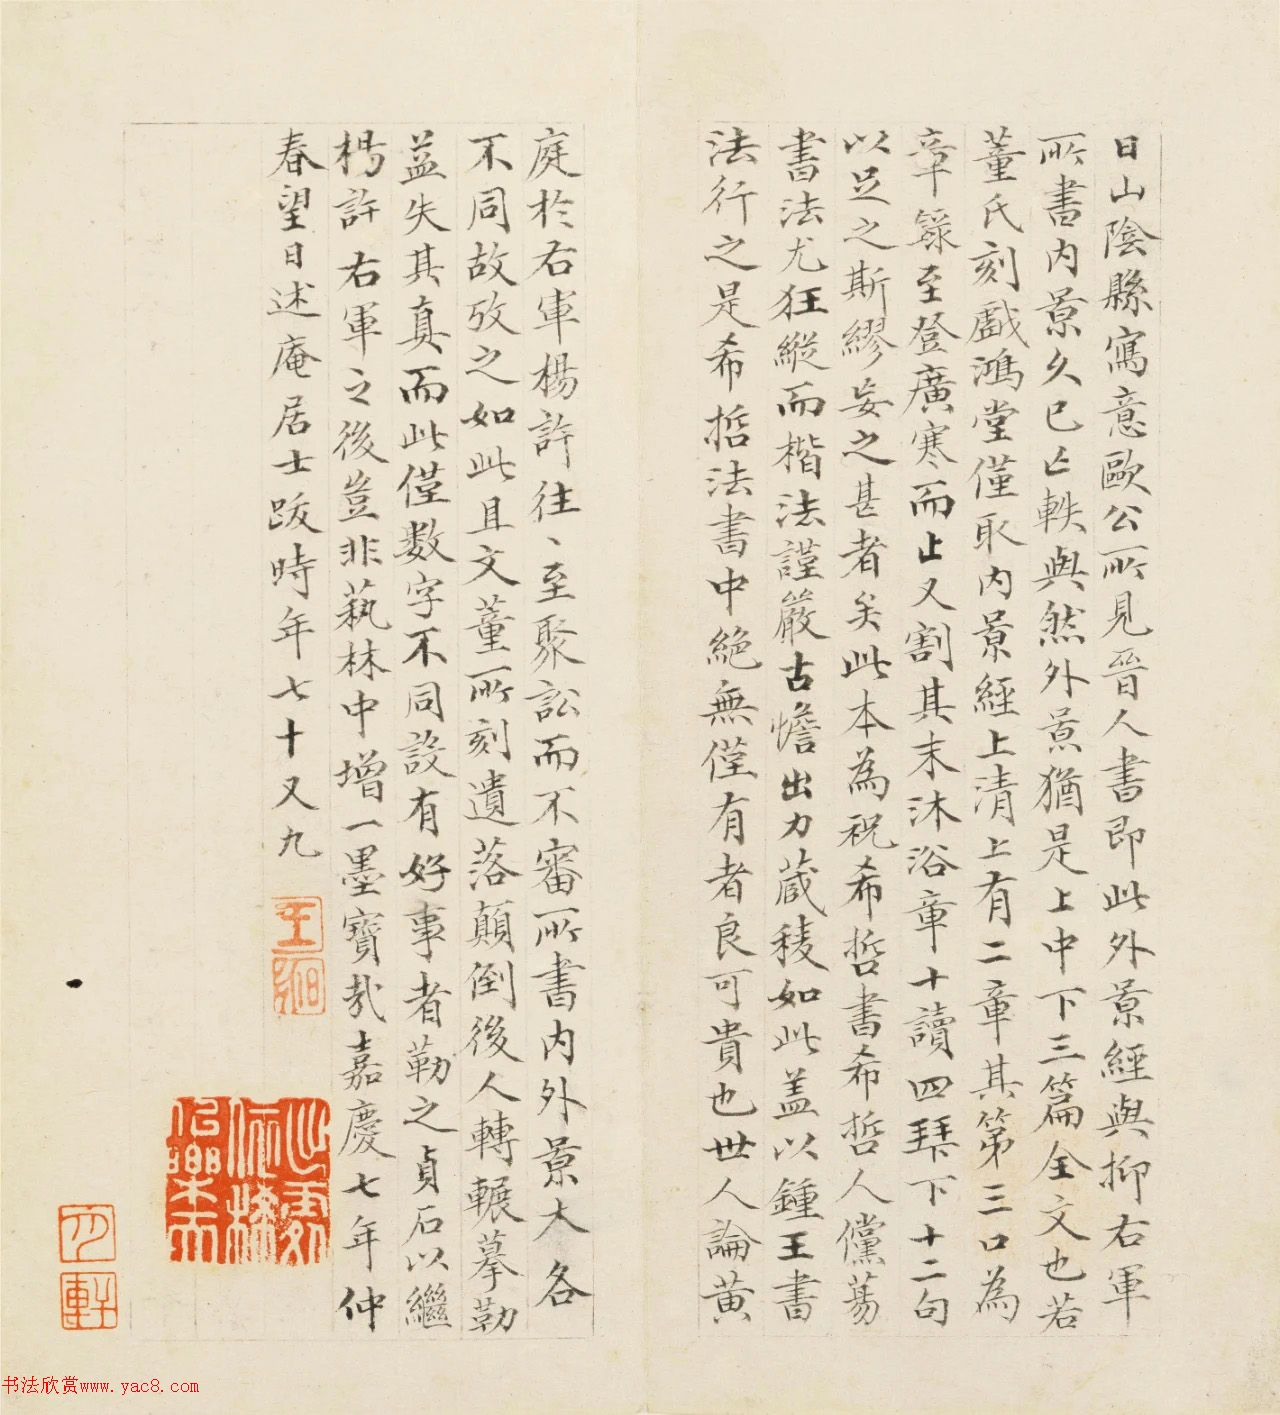 日山陰縣寫意歐公所見晉人書即此外景經與抑右軍
所書内景久已亡軼與然外景猶是上中下三篇全文也若
董氏刻戲鴻堂僅取内景經上清上有二章其第三口為
章錄至登廣寒而止又割其末沐浴章十讀四拜下十二句
以足之斯繆妄之甚者矣此本為祝希哲書希哲人儻蕩
書法尤狂縱而楷法謹嚴古憺出力藏稜如此盖以鍾王書
法行之是希哲法書中絶無僅有者良可貴也世人論黄
庭於右軍楊許往〻至聚訟而不審所書内外景大各
不同故攷之如此且文董所刻遺落顛倒後人轉輾摹勒
益失其真而此僅數字不同設有好事者勒之貞石以繼
楊許右軍之後豈非蓺林中增一墨寶哉嘉慶七年仲
春望日述庵居士跋時年七十又九
王昶
書法欣赏www.yac8.com